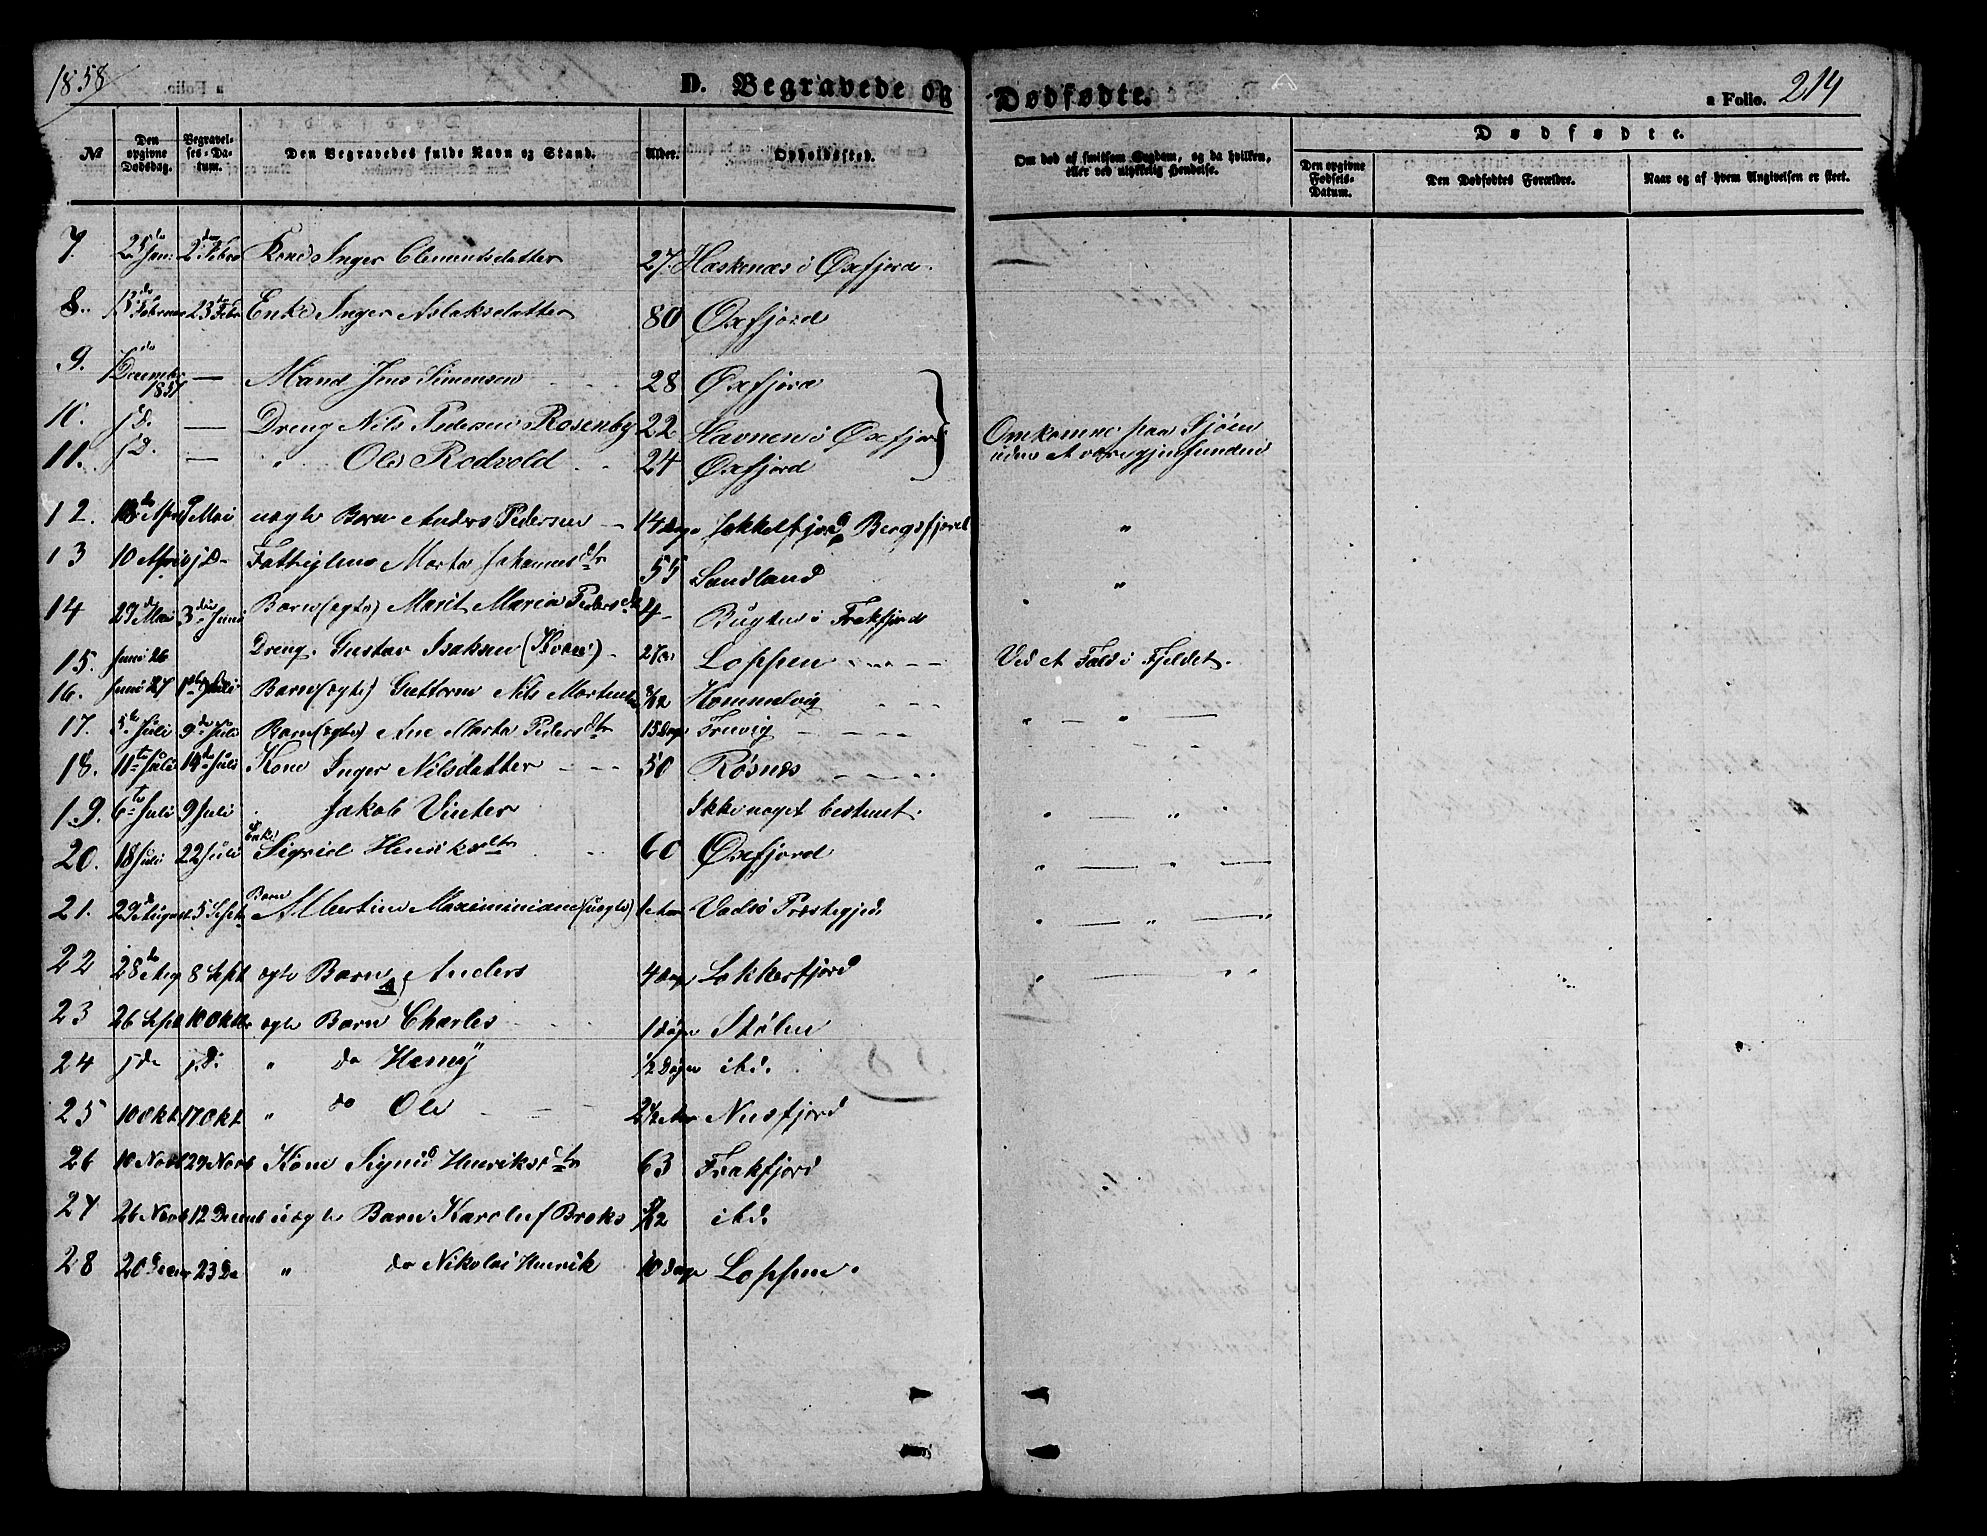 1858
D. Begravede og Dødfødte.
a Folio. 214
№ Den opgivne Dødsdag. Begravelses-Datum. Den Begravedes fulde Navn og Stand. Alder. Opholdssted. Om død af smitsom Sygdom, og da hvilken, eller ved ulykkelig Hendelse.
Dødfødte.
Den opgivne Fødsels-Datum. Den Dødfødtes Forældre. Naar og af hvem Angivelsen er skeet.
7. 25 Jan: 2den Febr Kone Inger Clementsdatter 27. Haskenæs i Øxfjord.
8. 13de Februar 23de Febr Enke Inger Aslaksdatter 80 Øxfjord
9. December 1857 — Mand Jens Simonsen 28 Øxfjord
10. jD. — Dreng Nils Pedersen Rosenby 22 Havnen i Øxfjord Omkomne paa Sjøen
11. jD. — " Ole Rodvold 24 Øxfjord uden at være gjenfundne
12. 18de April 9 Mai uægte Barn Anders Pedersen 14 Dage Jøkkelfjord Bergsfjord "
13 10 April jD Fattiglem Marta Johannesdtr 55 Sandland "
14 29de Mai 3die Juni Barn (ægte) Marit Maria Pedersdtr 4 Bugten i Frakfjord
15. Juni 26 Dreng. Gustav Isaksen (Kvæn) 27 Loppen Ved et Fald i Fjeldet.
16. Juni 27 1ste Juli Barn (ægte) Guttorm Nils Mortensen /12 Hommelvig
17. 5te Juli 9de Juli Barn (ægte) Ane Marta Pedersdtr 15 Dage Truvig " — " —
18. 11te Juli 14de Juli Kone Inger Nilsdatter 50 Røsnæs
19. 6te Juli 9 Juli Jakob Vinter Ikke noget bestemt. " — " "
20. 18 Juli 22 Juli Enke Sigrid Henriksdtr 60 Øxfjord " — " —
21. 29de August 5 Sept. Barn Albertine Maximiniane (uægte) 1 Aar Vadsø Præstegjed. " — " — "
22 28de Aug 8 Sept ægte Barn Anders 4 Dage Lokkerfjord " — " "
23 26 Sept 10 Oktbr ægte Barn Charles 1 Døgn Stølen
24 jde j.D. " do Henry 1/2 Døgn ibd.
25 10 Okt 17 Okt " do Ole 2 1/2 Aar Nusfjord
26 10 Novb 29 Novb Kone Sigrid Henriksdtr 63 Frakfjord
27 26 Novb 12 Decmb uægte Barn Karoluf Broks /12 ibd.
28 20 Decbr 23 De " do Nikolai Henrik 10 Dage Loppen.